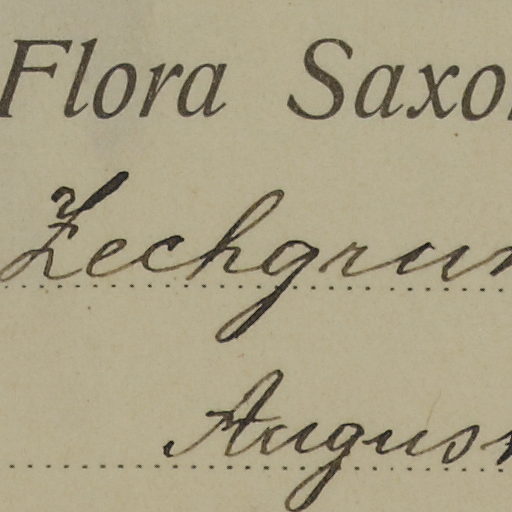 Flora Saxo
Zechgrun
August